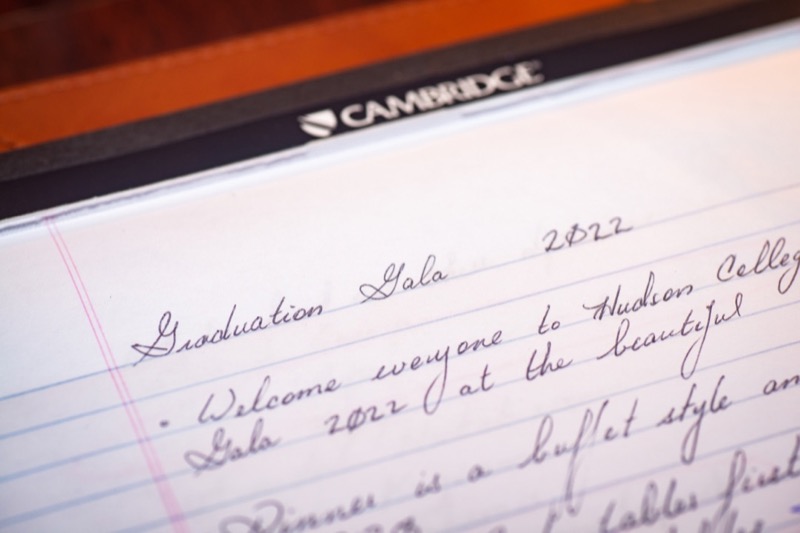 CAMBRIDGE
Graduation Gala 2022
• Welcome everyone to Hudson Colleg
Gala 2022 at the beautiful
Dinner is a buffet style an
tables first